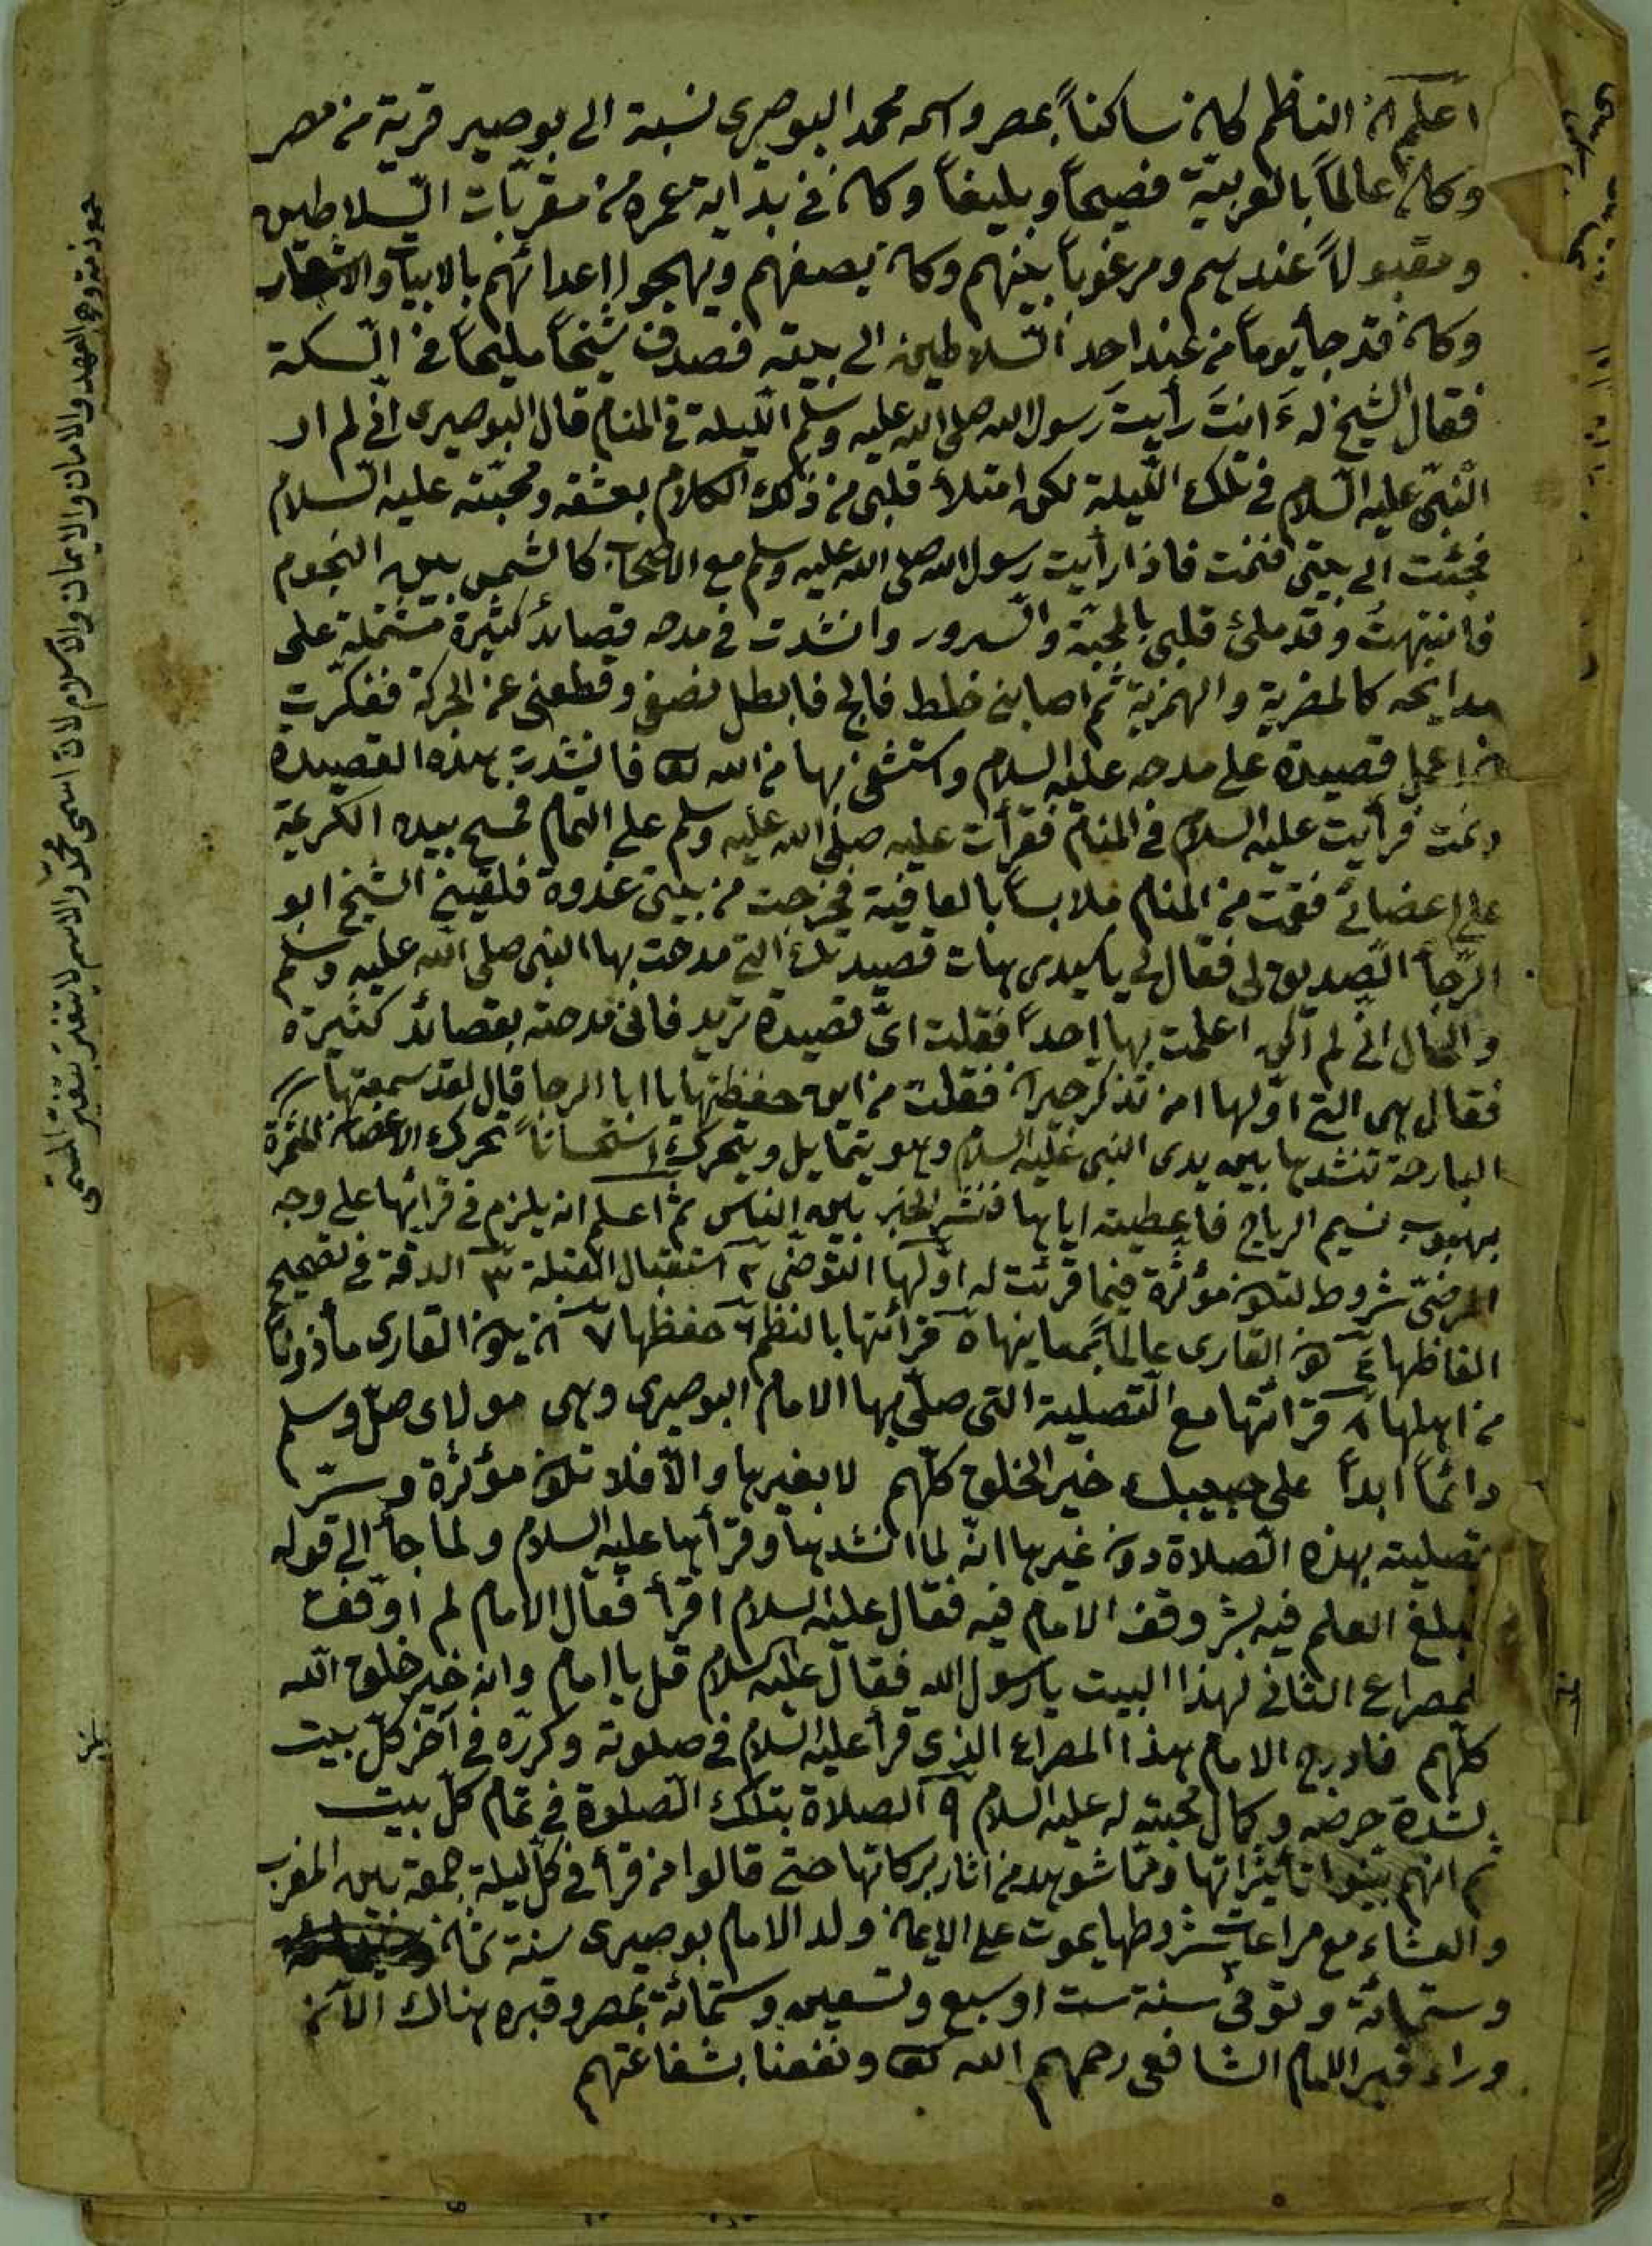 اعلم ان الناظم كان ساكناً بمصر واسمه محمد البوصيرى نسبة الى بوصير قرية من مصر
وكان عالماً بالعربيّة فصيحاً وبليغاً وكان فى بداية عمره من مقربّات السّلاطين
ومقبولاً عندهم ومرغوباً بينهم وكان يصفهم ويهجوا اعدائهم بالابيات والاشعار
وكان قد جأ يوماً من عند احد السّلاطين الى بيته فصدف شيخاً مليحاً فى السّكة
فقال الشيخ له ءانت رأيت رسول الله صلى الله عليه وسلم اللّيلة فى المنام قال البوصيرى انى لم ار
النّبىّ عليه السّلام فى تلك اللّيلة لكن امتلأ قلبى من ذلك الكلام بعشقه ومحبّته عليه السّلام
فجئت الى بيتى فنمت فاذا رأيت رسول الله صلى الله عليه وسلم مع الاصحاب كالشمس بين النجوم
فانتبهتُ وقد ملئ قلبى بالمحبّة والسّرور وانشدت فى مدحه قصائد كثيرة مشتملة على
مدايحه كالمضرية والهمزية ثم اصابنى خلط فالج فابطل نصفى وقطعنى عن الحركة ففكّرت
ان اعمل قصيدة على مدحه عليه السلام واستشفى بها من الله تعا فانشدت بهذه القصيدة
ونمت فرأيت عليه السلام فى المنام فقرأت عليه صلى الله عليه وسلم على التمام فمسح بيده الكريمة
على اعضائى فقمت من المنام ملابساً بالعافية فخرجت من بيتى غدوة فلقينى الشيخ ابو
الرّجأ الصّديق لى فقال لى يا سيدى هات قصيدتك التى مدحت بها النبى صلى الله عليه وسلم
والحال انى لم اكن اعلمت بها احداً فقلت اىّ قصيدة تريد فانى مدحته بقصائد كثيرة
فقال هى التى اوّلها امن تذكر جيران فقلت من اين حفظتها يا ابا الرجا قال لقد سمعتها
البارحة تنشدها بين يدى النبى عليه السلام وهو يتمايل ويتحرك استحساناً تحرك الاغصان المثمرة
بهبوب نسيم الرياح فاعطيته اياها فنشر الخبر بين الناس ثم اعلم انه يلزم فى قرائتها على وجه
المرضىّ شروط لتكون مؤثرة فيما قرئت له اوّلها التوضّى ٢ استقبال القبلة ٣ الدقة فى تصحيح
الفاظها ٤ كون القارى عالماً بمعاينها ٥ قرائتها بالنظم ٦ حفظها ٧ ان يكون القارى مأذوناً
من اهلها ٨ قرائتها مع التّصلية التى صلّى بها الامام البوصيرى وهى مولاى صلّ وسلم
دائماً ابداً على حبيبك خير الخلق كلّهم لا بغيرها والّا فلا تكون مؤثرة وسرّ
تصليته بهذه الصّلاة دون غيرها انّه لما انشدها وقرأها عليه السلام ولما جأ الى قوله
فمبلغ العلم فيه بشر وقف الامام فيه فقال عليه السلام اقرأ فقال الامام لم اوفّق
لمصراع الثانى لهذا البيت يا رسول الله فقال عليه السلام قل يا امام وانه خير خلق الله
كلّهم فادرج الامام هذا المصراع الذى قرأ عليه السلام فى صلوته وكرّره فى آخر كلّ بيت
لشدة حرصه وكمال محبته له عليه السلام ٩ الصلاة بتلك الصّلوة فى تمام كلّ بيت
ثم انهم بينوا تأثيراتها ومما شوهد من اثار بركاتها حتى قالوا من قرأ فى كلّ ليلة جمعة بين المغرب
والعشاء مع مراعات شروطها يموت على الايمان ولد الامام بوصيرى سنة ثمان
وستمائة وتوفى سنة ست او سبع وتسعين وستمائة بمصر وقبره هناك الآن
وراء قبر الامام الشافعى رحمهم الله تعا ونفعنا بشفاعتهم
والعهد والامان والايمان والاسلام لان اسمى محمّد والاسم لا يتغيّر بتغيّر المسمّى